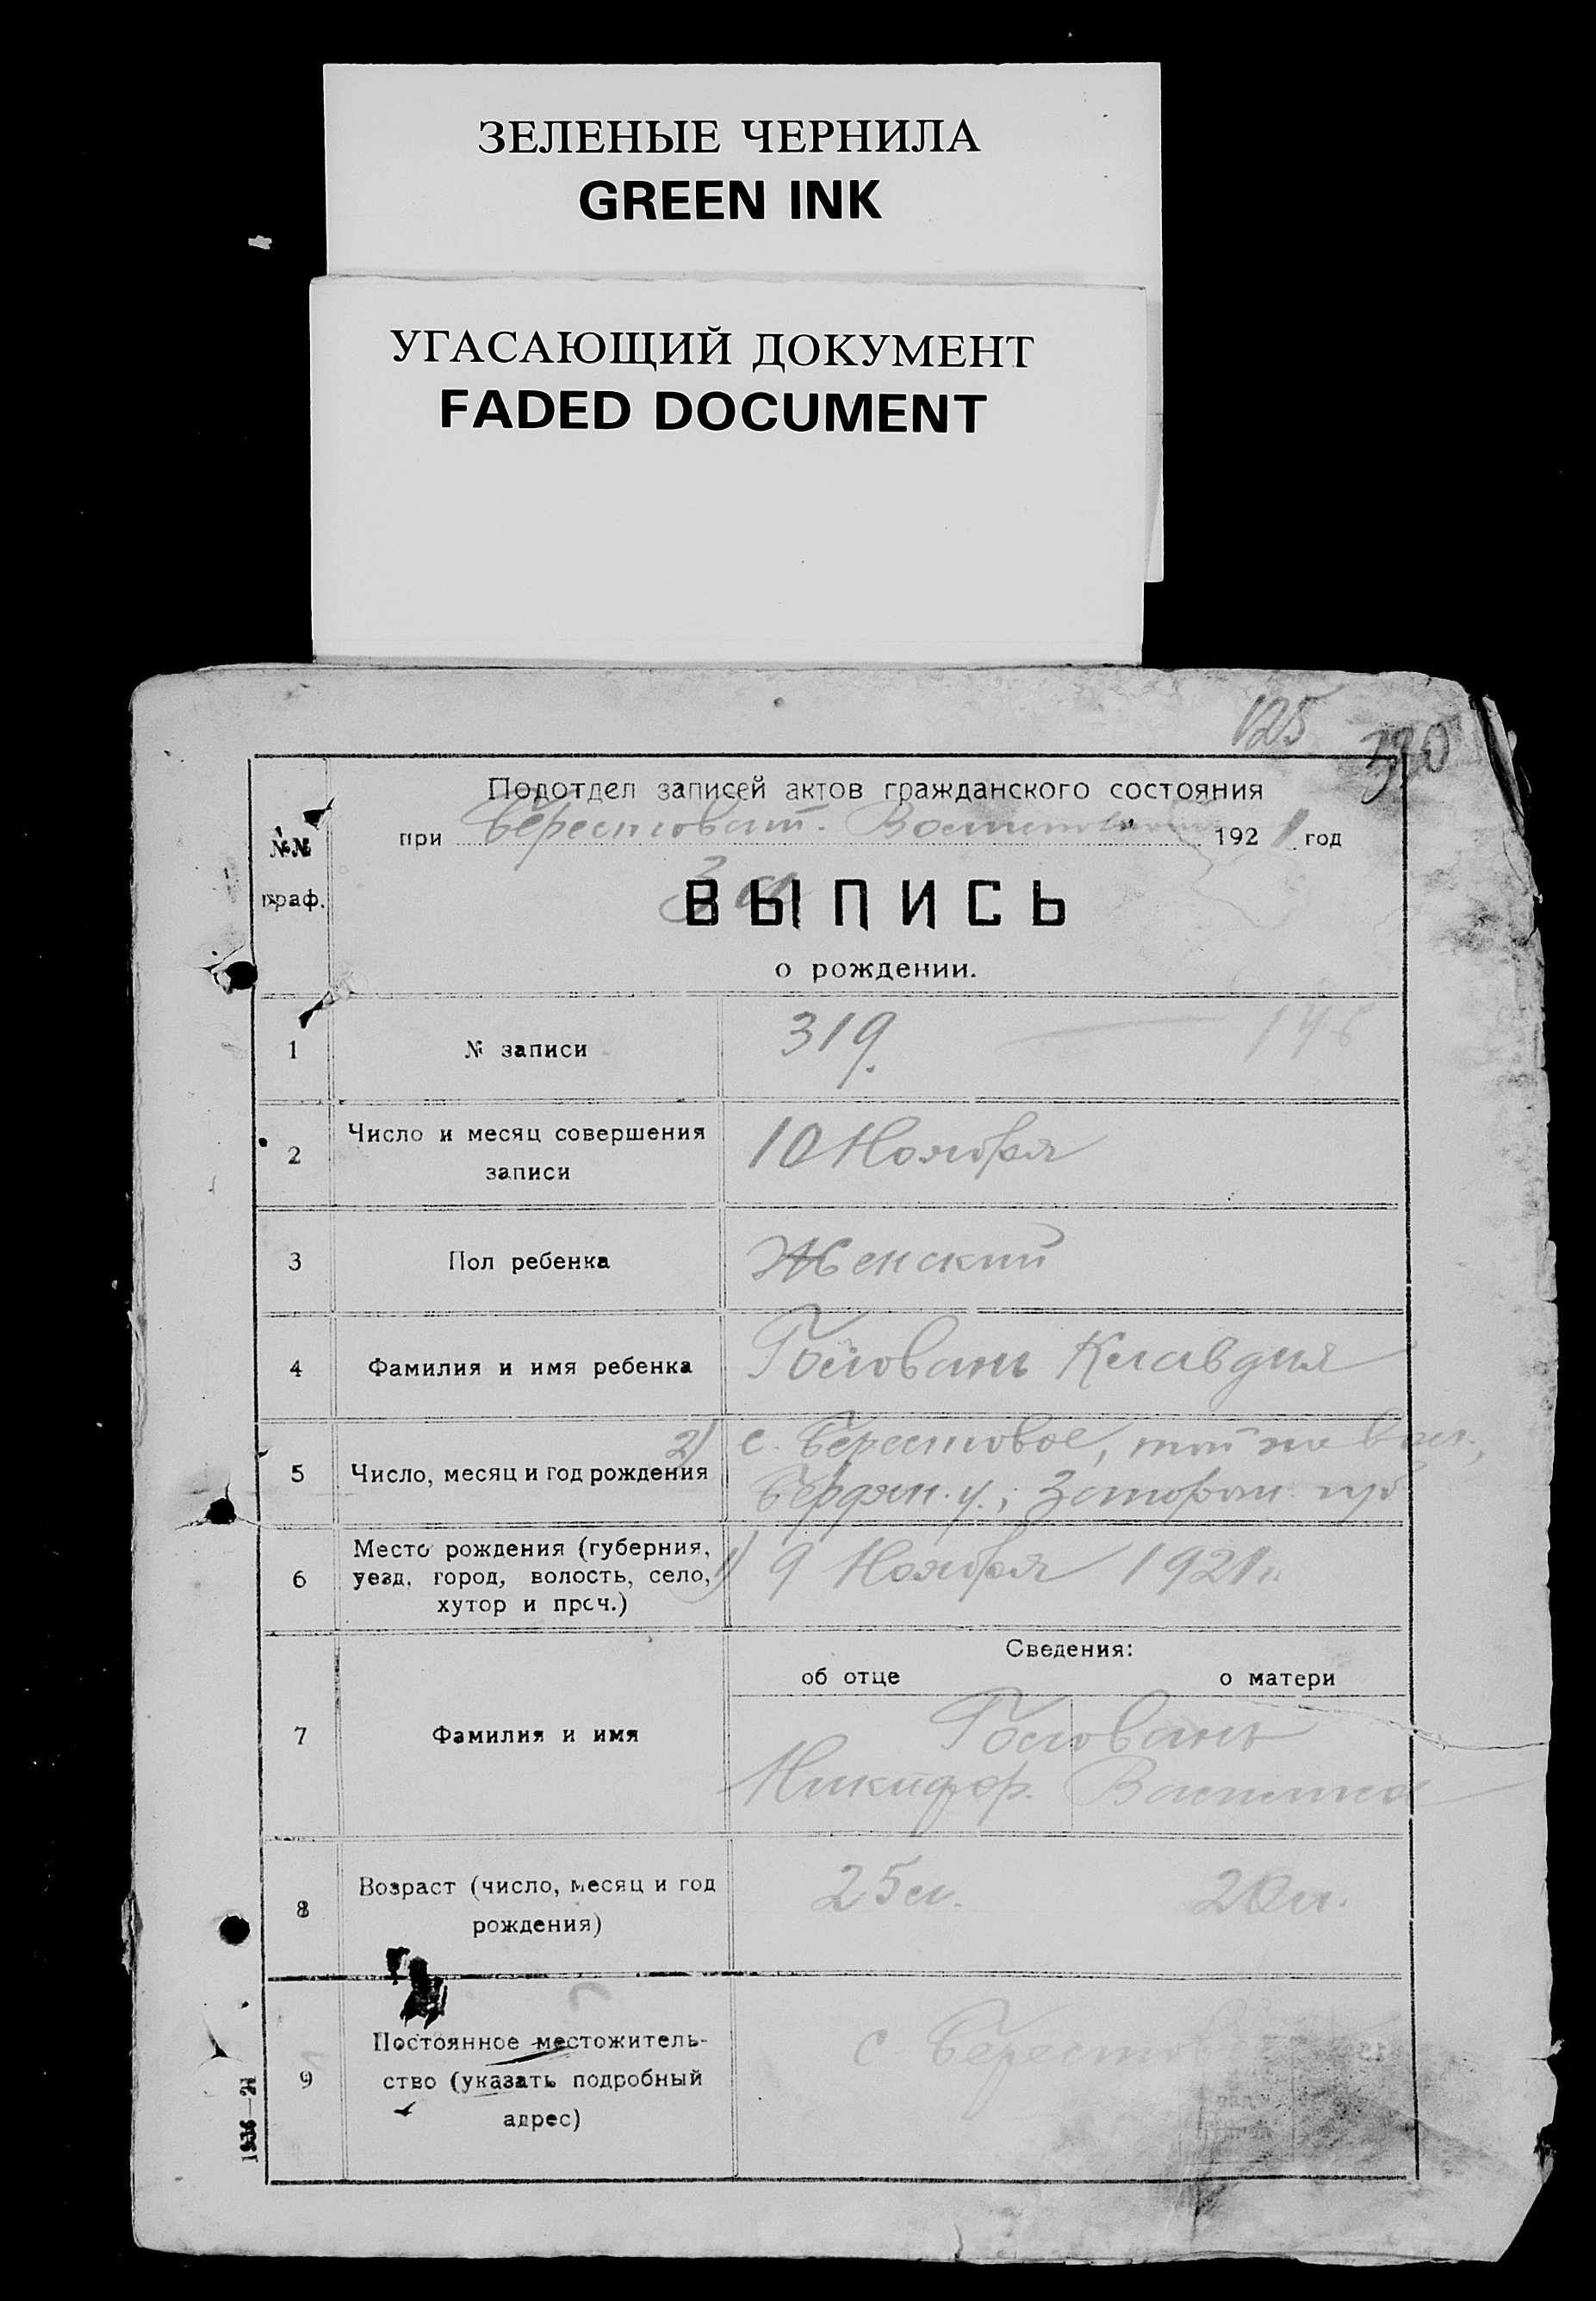 ЗЕЛЕНЫЕ ЧЕРНИЛА
GREEN INK
УГАСАЮЩИЙ ДОКУМЕНТ
FADED DOCUMENT
125
390
Подотдел записей актов гражданского состояния
при Берестоват. 1921 год
№№ граф.
За
ВЫПИСЬ
о рождении.
1 № записи 319. 146
2 Число и месяц совершения
записи
10 Ноября
3 Пол ребенка Женский
4 Фамилия и имя ребенка Головань Клавдия
2) с. Берестовое, той же Вол.,
5 Число, месяц и год рождения
Бердян. у.; Запорож. губ
6 Место рождения (губерния,
уезд, город, волость, село,
хутор и проч.)
1) 9 Ноября 1921 г.
Сведения:
об отце о матери
7 Фамилия и имя
Головань
Никифор. Василиса
8 Возраст (число, месяц и год
рождения)
25 л. 20 л.
9 Постоянное местожитель-
ство (указать подробный
адрес)
с Бересто
1936—21